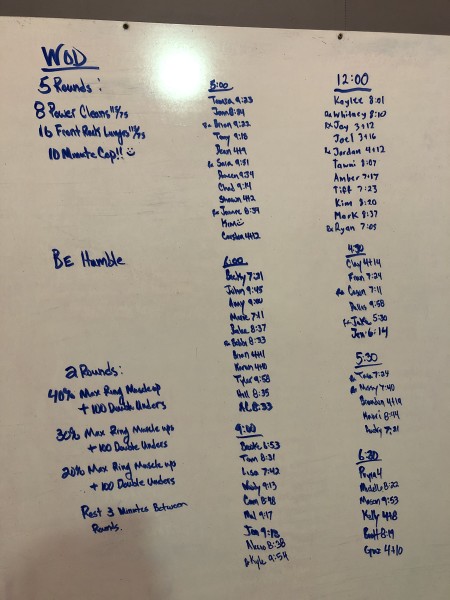 WOD
5 Rounds:
8 Power Cleans
16 Front Rack Lunges
10 Minute Cap!!
BE Humble
2 Rounds:
40% Max Ring Muscle up
+ 100 Double Unders
30% Max Ring Muscle ups
+ 100 Double Unders
20% Max Ring Muscle ups
+ 100 Double Unders
Rest 3 Minutes Between
Rounds.
5:00
9:23
8:24
Rx Brian 9:22
Tony 9:18
Dean 4+9
Rx Sara 9:51
9:34
Chad 9:14
Shawn 4+2
Rx 8:39
Carolina 4+12
6:00
Becky 7:21
John 9:45
Amy
Marie 7:11
Blake 8:37
Rx Bobbi 8:33
Brian 4+1
Karen 4+10
Tyler 9:58
Hill 8:35
AL 8:33
9:00
Beck 6:53
Tam 8:31
Lisa 7:42
Wendy 9:13
Cam 8:48
Mel 9:17
Jim 9:18
8:38
Rx Kyle 9:54
12:00
Kaylee 8:01
Rx Whitney 8:10
Rx Jay 3+12
Joel 3+16
Rx Jordan 4+12
Tawni 8:07
Amber 7:17
Tiff 7:23
Kim 8:20
Mark 8:37
Rx Ryan 7:05
4:30
Clay 4+14
Fran 7:24
Rx Casen 7:11
9:58
Rx Jake 5:30
Jen 6:14
5:30
Rx Tate 7:24
Rx Missy 7:40
Brandon 4+19
8:44
7:21
6:30
Michelle 8:22
Mason 9:53
Kelly 4+8
Brett 8:19
4+10